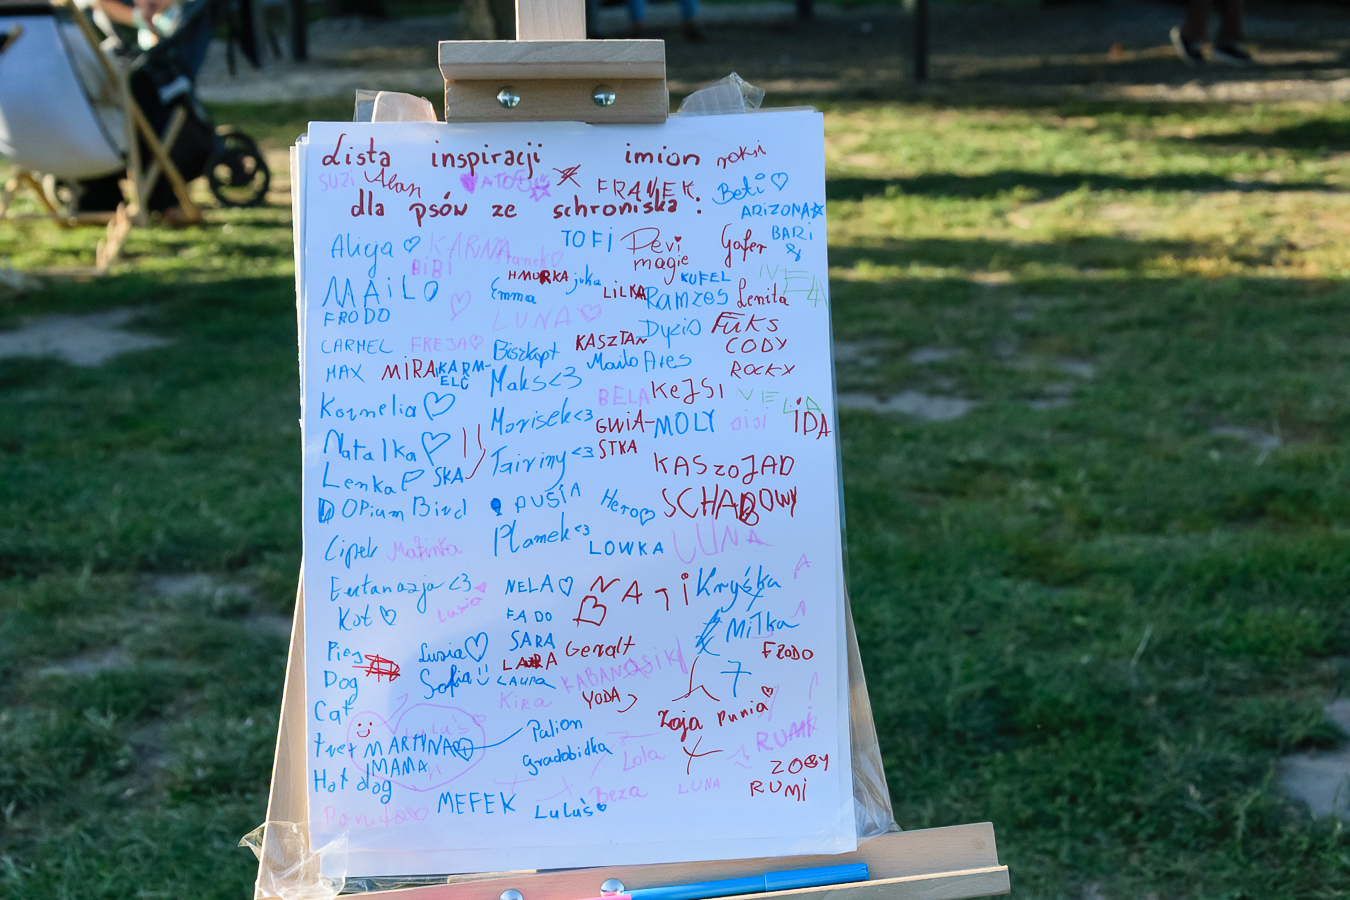 Lista inspiracji imion roksi
SUZI Alan ATOS FRANEK Beti
dla psów ze schroniska: ARIZONA
Alicja KARINA TOFI Devi Gofer BARI
BIBI Franek magie
HMURKA juka KUFEL
MAILO Emma LILKA RAMZES Lenita
FRODO LUNA Dyzio FUKS
CARMEL FREJA Biszkopt KASZTAN CODY
MAX MIRA KARM-
ELĆ Mailo Ares ROCKY
Maks<3 BELA KEJSI VELA
Kornelia Morisek<3 GWIA-
STKA MOLY GIGI IDA
Natalka
Lenka SKA KASZOJAD
OPium Bird PUSIA Hero SCHABOWY
Cipek Malinka Plamek<3 LOWKA LUNA
Eutanazja <3 NELA NATI Kryśka
Kot Lusia FADO Milka
Pies Lusia SARA Geralt FRODO
Dog Sofia LAURA KABANOSIK
LAURA
Cat Kira YODA Zoja Punia
Luluś Palion RUMIK
MARTYNA gradobidka Lola
MAMA ZOSY
Hot dog Beza LUNA RUMI
MEFEK Luluś